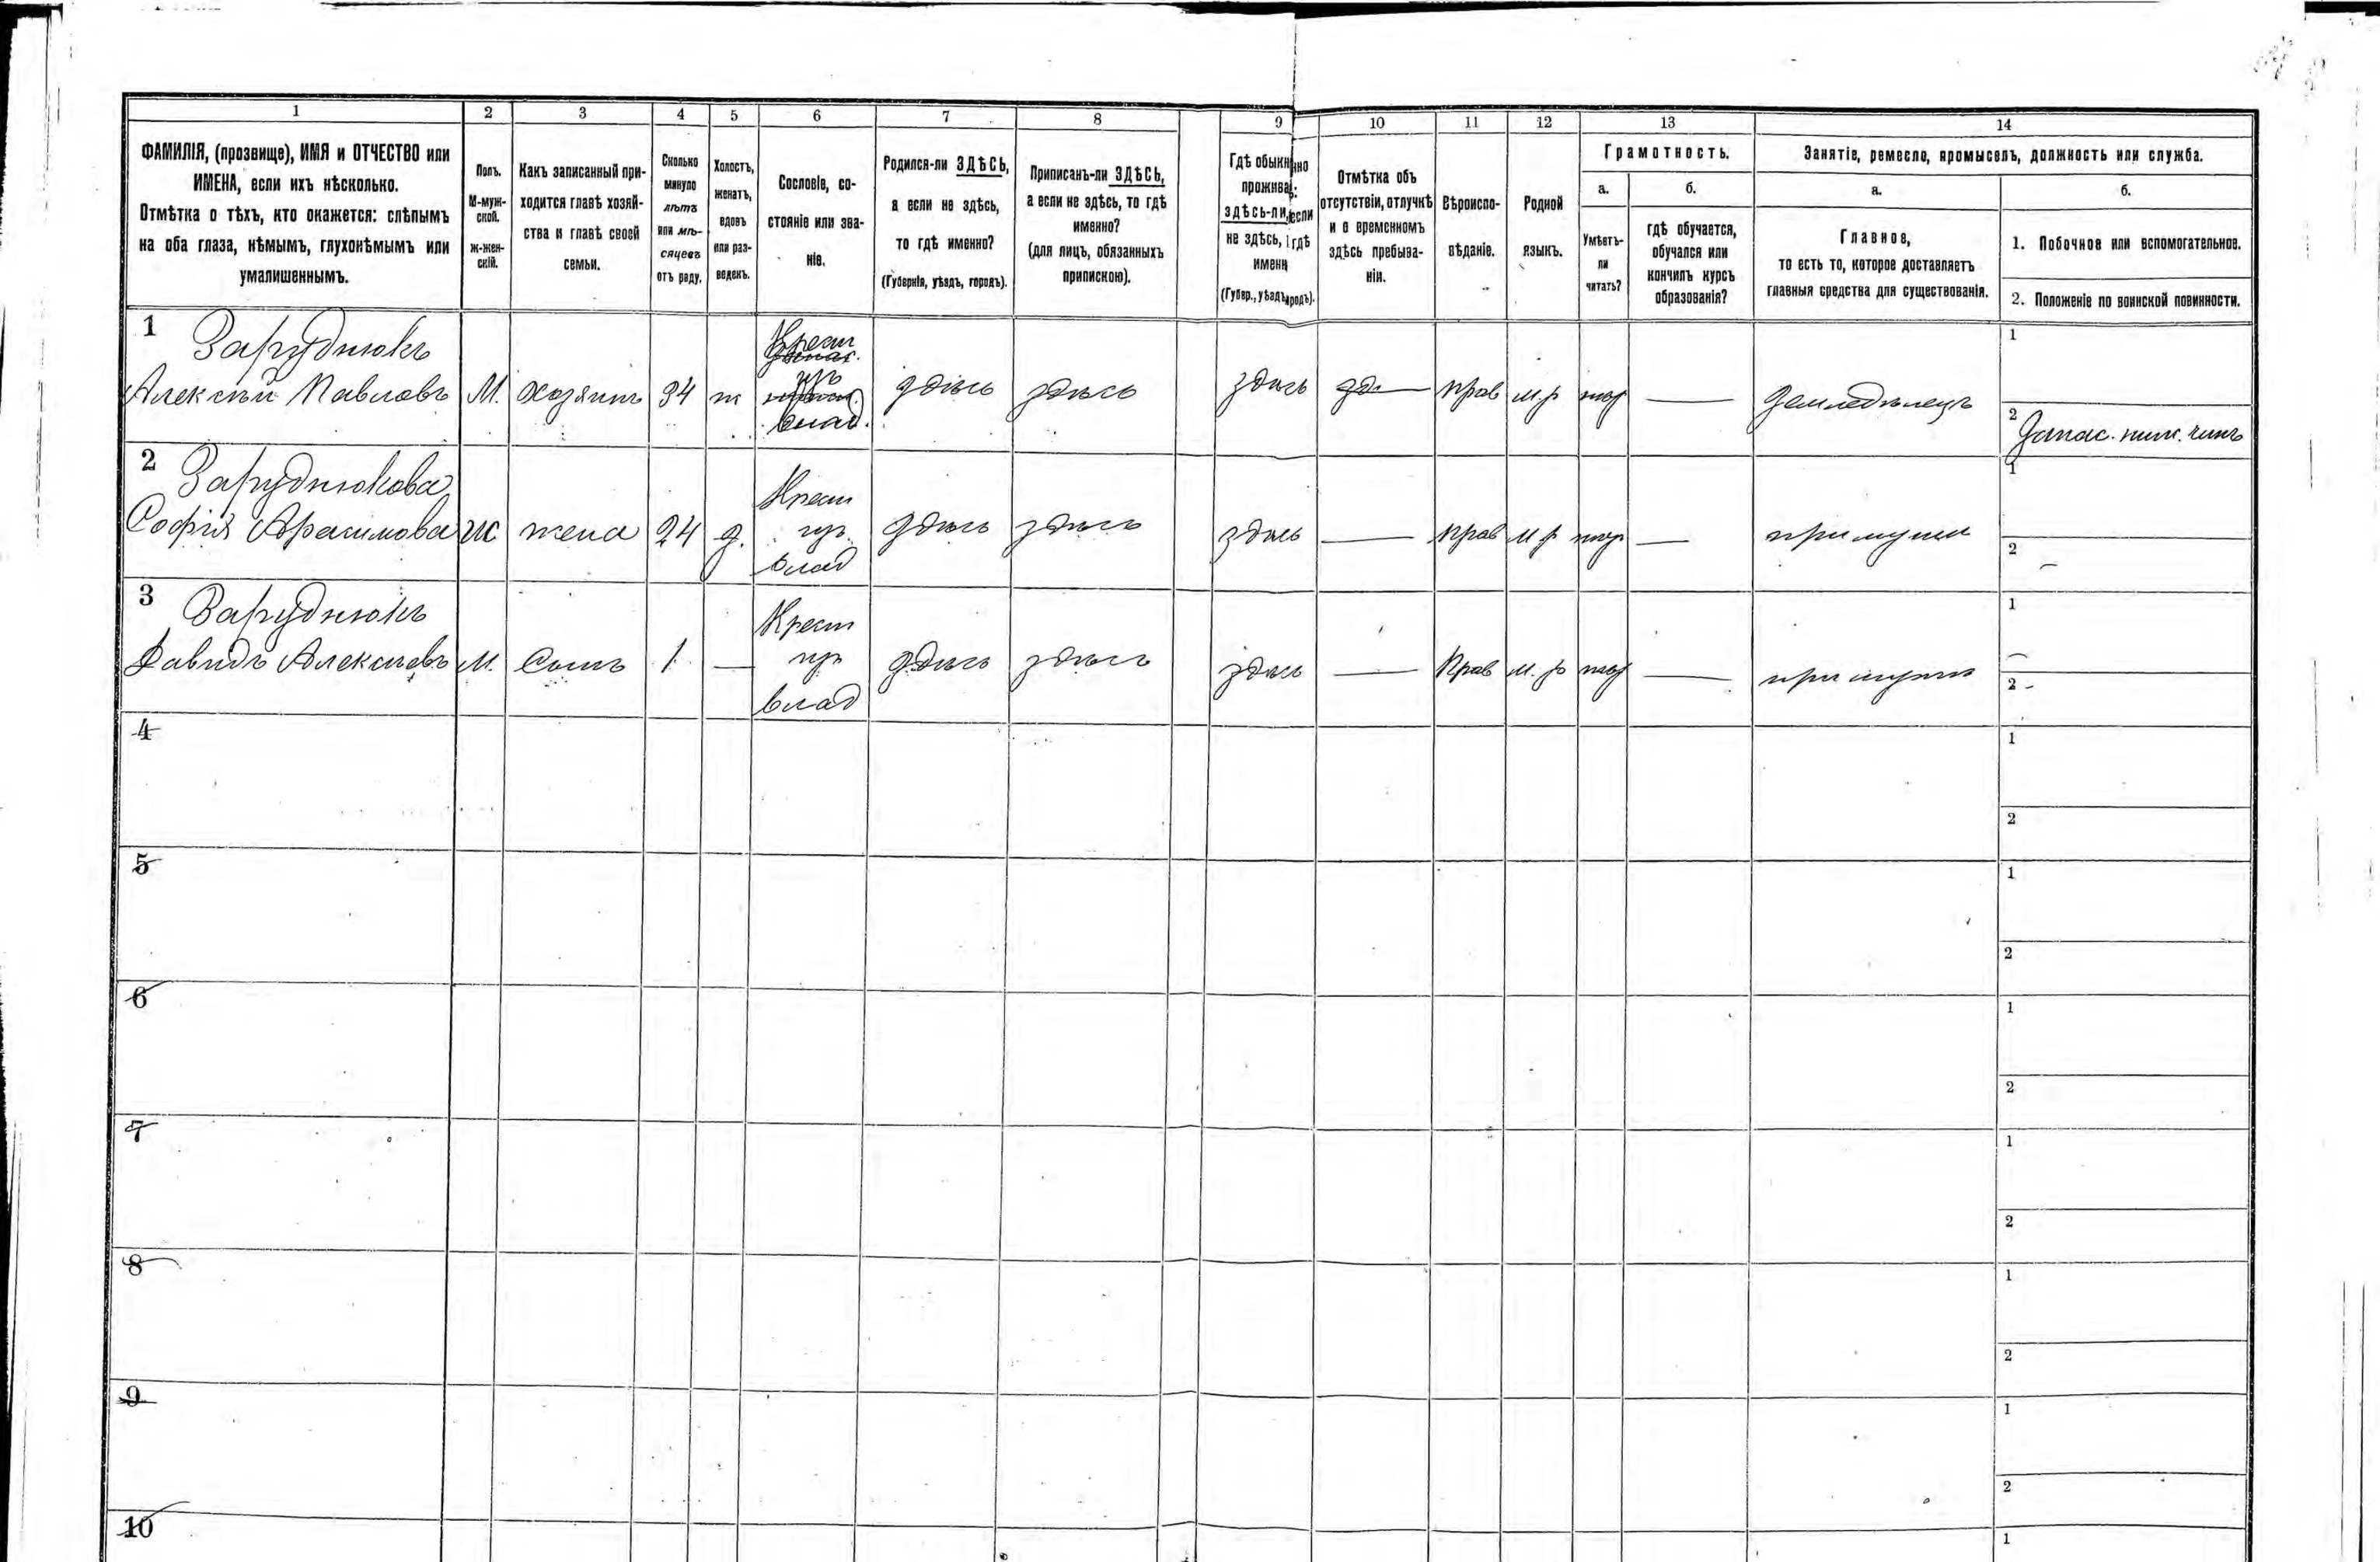 1 2 3 4 5 6 7 8 9 10 11 12 13 14
ФАМИЛІЯ, (прозвище), ИМЯ и ОТЧЕСТВО или
ИМЕНА, если ихъ нѣсколько.
Отмѣтка о тѣхъ, кто окажется: слѣпымъ
на оба глаза, нѣмымъ, глухонѣмымъ или
умалишеннымъ.
Полъ.
М-муж-
ской.
ж-жен-
скій.
Какъ записанный при-
ходится главѣ хозяй-
ства и главѣ своей
семьи.
Сколько
минуло
лѣтъ
или мѣ-
сяцевъ
отъ роду.
Холостъ,
женатъ,
вдовъ
или раз-
веденъ.
Сословіе, со-
стояніе или зва-
ніе.
Родился-ли ЗДѢСЬ,
а если не здѣсь,
то гдѣ именно?
(Губернія, уѣздъ, городъ).
Приписанъ-ли ЗДѢСЬ,
а если не здѣсь, то гдѣ
именно?
(для лицъ, обязанныхъ
припискою).
Гдѣ обыкновенно
проживаетъ:
ЗДѢСЬ-ЛИ, если
не здѣсь, гдѣ
именно
(Губер., уѣздъ, городъ).
Отмѣтка объ
отсутствіи, отлучкѣ
и о временномъ
здѣсь пребыва-
ніи.
Вѣроиспо-
вѣданіе.
Родной
языкъ.
Грамотность.
а.
Умѣетъ-
ли
читать?
б.
гдѣ обучается,
обучался или
кончилъ курсъ
образованія?
Занятіе, ремесло, промыселъ, должность или служба.
а.
Главное,
то есть то, которое доставляетъ
главныя средства для существованія.
б.
1. Побочное или вспомогательное.
2. Положеніе по воинской повинности.
1 Заруднюкъ
Алексѣй Павловъ М. хозяинъ 34 ж Крест влад. здѣсь здѣсь здѣсь прав м.р Земледѣлецъ
1
2 Запас. ниж. чинъ
2 Заруднюкова
Софія жена 24 з. Крест влад здѣсь здѣсь здѣсь — прав м р — при мужѣ
1
2 —
3 Заруднюкъ
Давидъ Алексѣевъ М. Сынъ 1 — Крест влад здѣсь здѣсь здѣсь — Прав м. р —
1
2 -
4
1
2
5
1
2
6
1
2
7
1
2
8
1
2
9
1
2
10
1